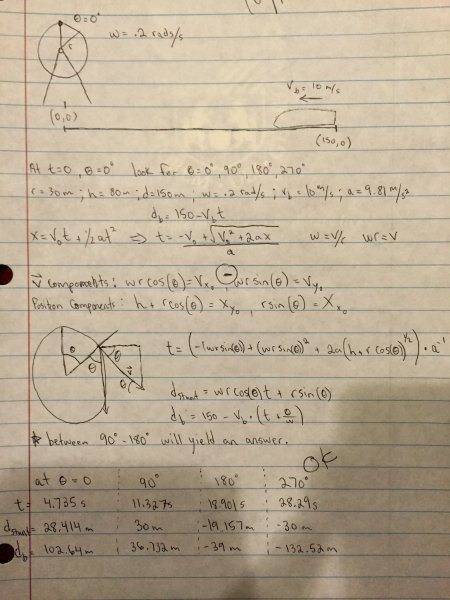 θ=0°
ω = .2 rads/s
r
V_b = 10 m/s
(0,0)
(150,0)
At t=0, θ=0° look for θ=0°, 90°, 180°, 270°
r=30m; h=80m; d=150m; ω=.2 rad/s; V_b=10m/s; a=9.81 m/s²
d_b = 150-V_b t
x=V_0t+½at² ⇒ t= (-V_0+√(V_0²+2ax))/a ω=V/r ωr=V
v⃗ components: ωr cos(θ)=V_x0, ⊖ωr sin(θ)=V_y0
Position components: h+rcos(θ)=X_y0, rsin(θ)=X_x0
θ θ θ θ v⃗
t=(-1ωrsin(θ)+(ωrsin(θ)²+2a(h+rcos(θ))^1/2)·a⁻¹
d_stunt=ωrcos(θ)t+rsin(θ)
d_b=150-V_b·(t+θ/ω)
* between 90°-180° will yield an answer.
OK
at θ=0 90° 180° 270°
t= 4.735s 11.327s 18.901s 28.29s
d_stunt= 28.414m 30m -19.157m -30m
d_b= 102.64m 36.732m -39m -132.52m